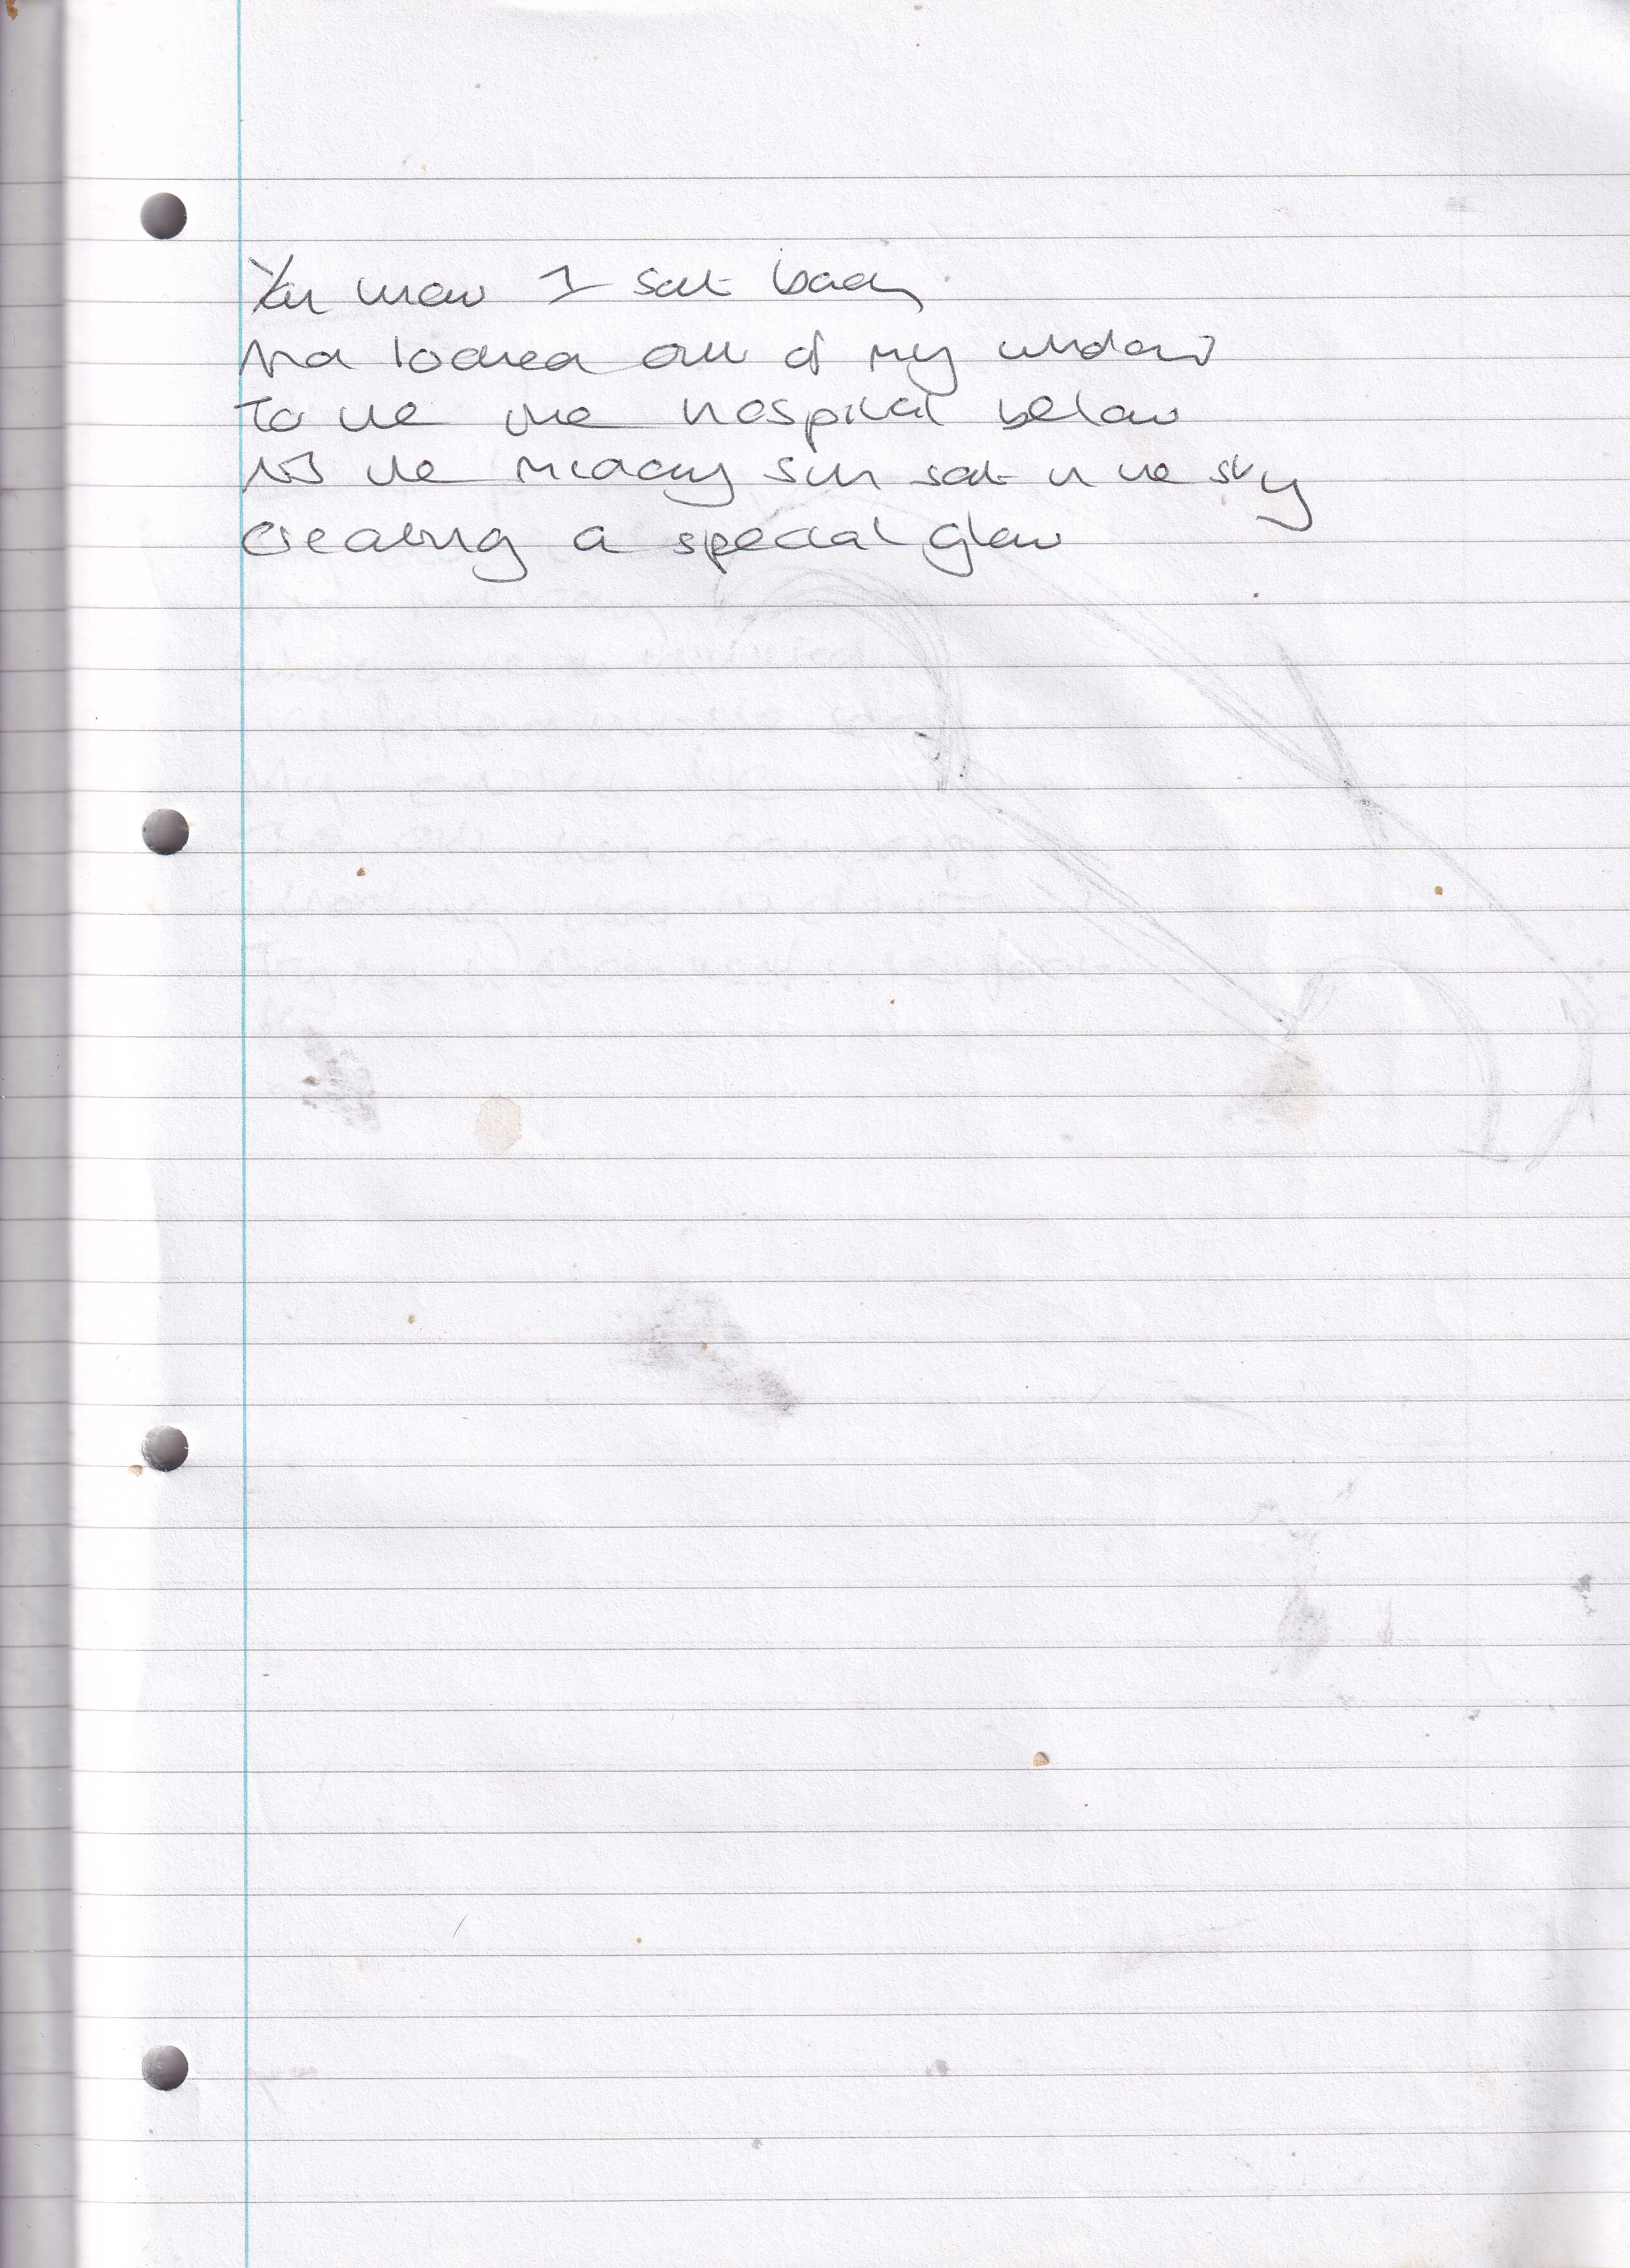 You know I sat back
And looked out of my window
To see the hospital below
As the midday sun sat in the sky
creating a special glow